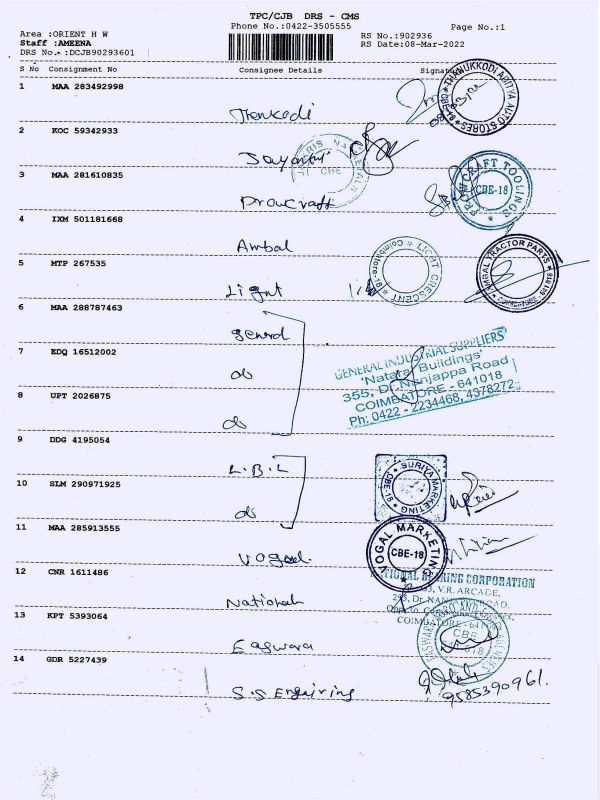 TPC/CJB DRS - CMS
Phone No.:0422-3505555
Page No.:1
Area :ORIENT H W
RS No.:902936
Staff :AMEENA
RS Date:08-Mar-2022
DRS No.:DCJB90293601
S No Consignment No Consignee Details Signature
1 MAA 283492998
THANUKKODI ADITYA AUTO STORES
2 KOC 59342933
CBE
3 MAA 281610835
PROW CRAFT TOOLINGS
CBE-18
4 IXM 501181668
Ambal
AMBAL TRACTOR PARTS
COIMBATORE
5 MTP 267535
Light
LIGHT CRESCENT
Coimbatore-18
6 MAA 288787463
General
7 EDQ 16512002
do
GENERAL INDUSTRIAL SUPPLIERS
'Nataraj Buildings'
355, Dr. Nanjappa Road
COIMBATORE - 641018
Ph: 0422 - 2234468, 4378272
8 UPT 2026875
do
9 DDG 4195054
L.B.L
SURIYA MARKETING
CBE-18
10 SLM 290971925
do
11 MAA 285913555
VOGAL MARKETING
CBE-18
12 CNR 1611486
National
NATIONAL BEARING CORPORATION
V.R. ARCADE,
COIMBATORE - 641
13 KPT 5393064
Easwara
CBE
14 GDR 5227439
S.S Engiring
9585390961.